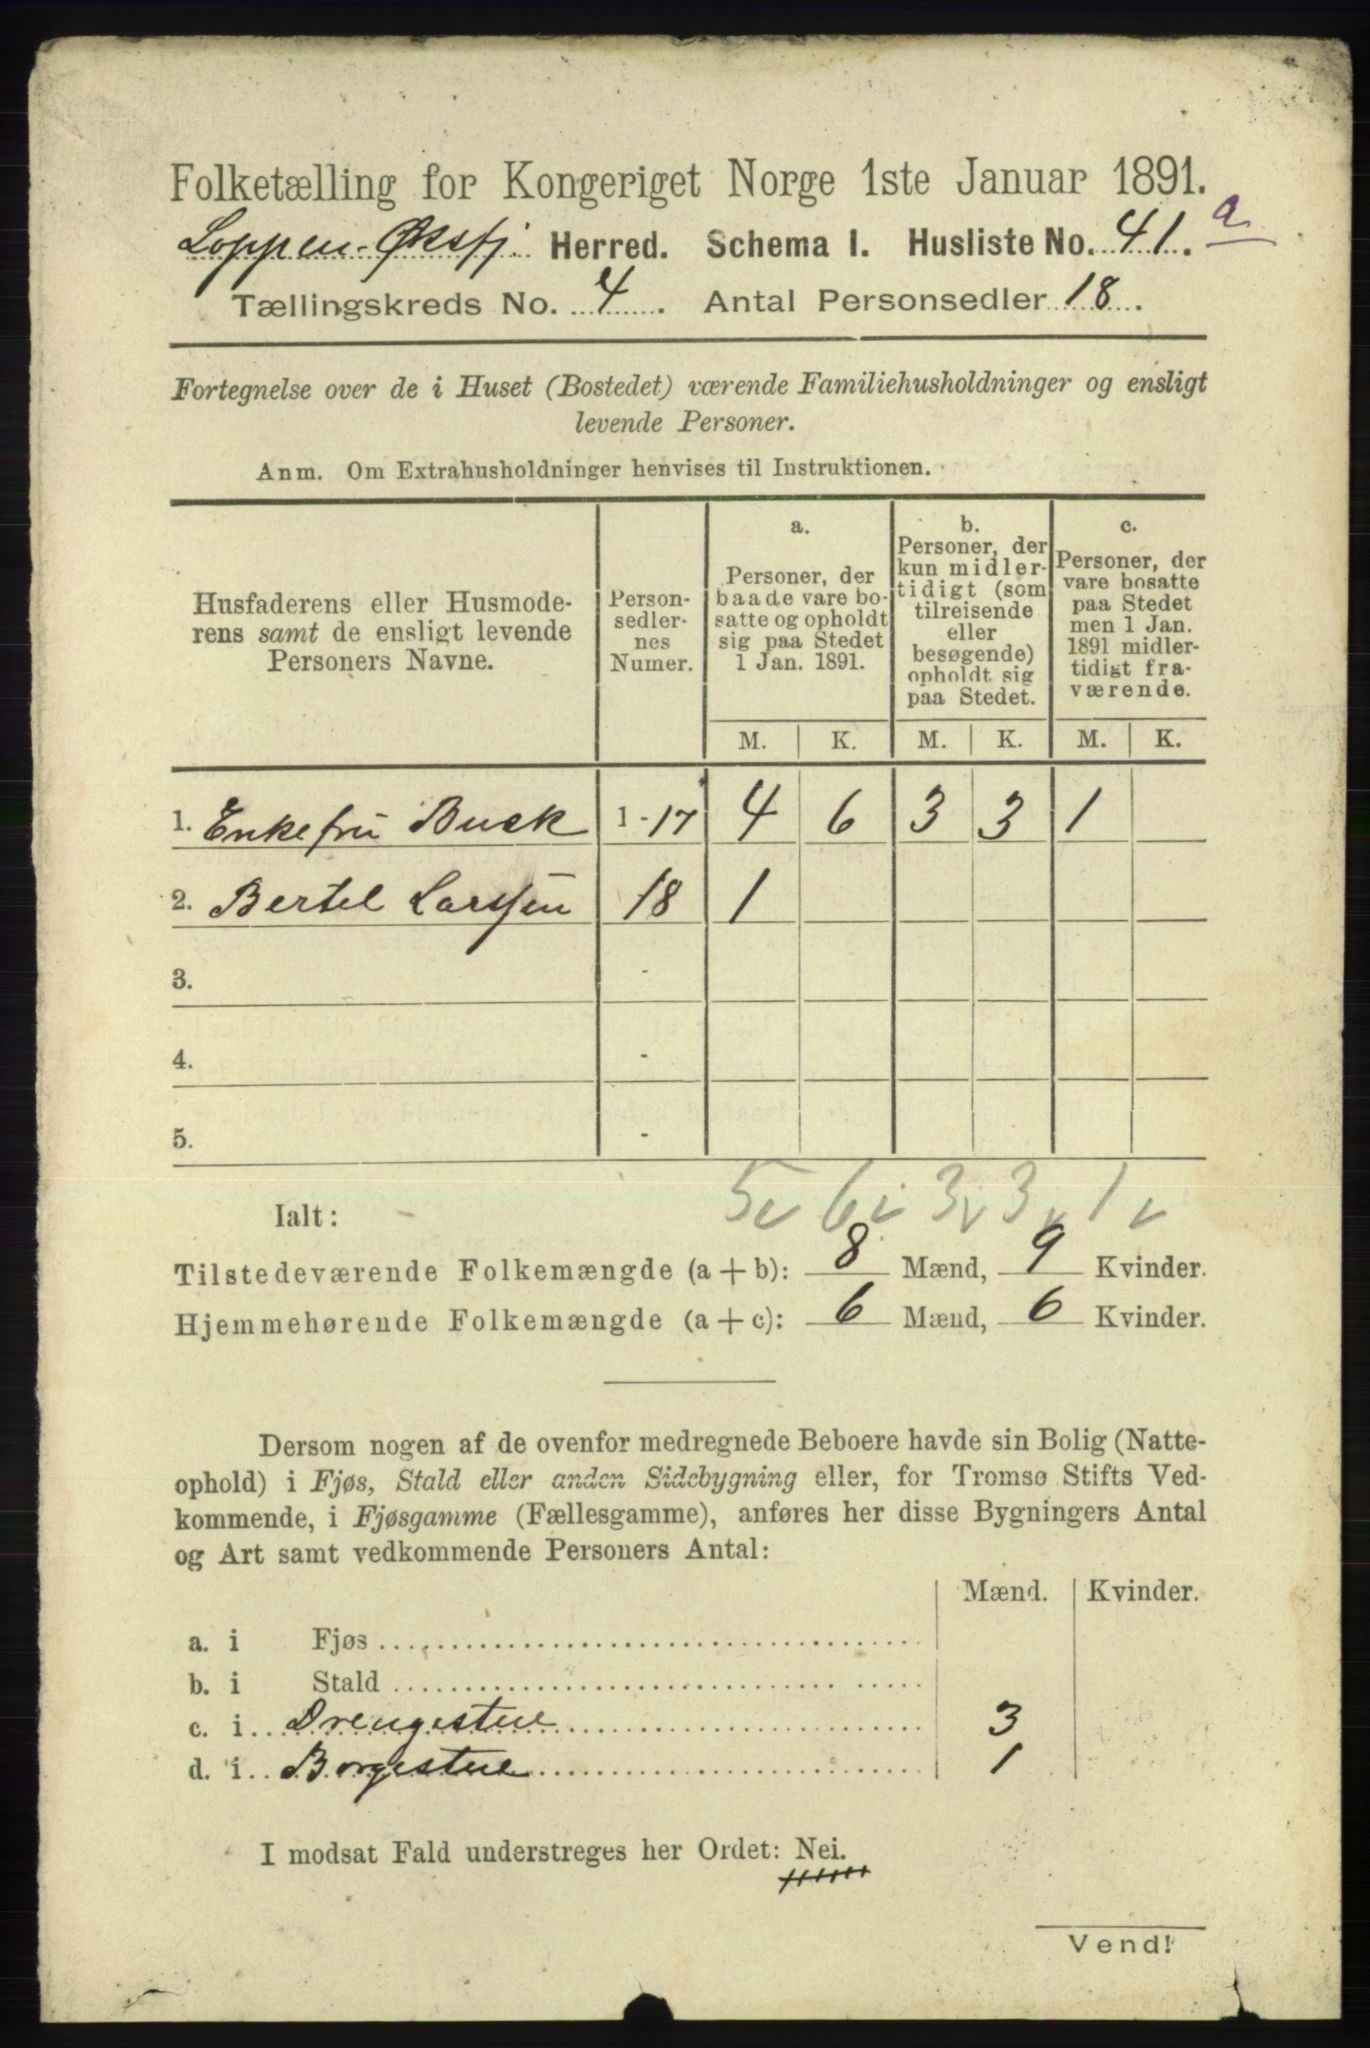 Folketælling for Kongeriget Norge 1ste Januar 1891.
Loppen-Øksfj. Herred. Schema I. Husliste No. 41. a
Tællingskreds No. 4. Antal Personsedler 18.
Fortegnelse over de i Huset (Bostedet) værende Familiehusholdninger og ensligt
levende Personer.
Anm. Om Extrahusholdninger henvises til Instruktionen.
Husfaderens eller Husmode-
rens samt de ensligt levende
Personers Navne.
Person-
sedler-
nes
Numer.
a.
Personer, der
baade vare bo-
satte og opholdt
sig paa Stedet
1 Jan. 1891.
b.
Personer, der
kun midler-
tidigt (som
tilreisende
eller
besøgende)
opholdt sig
paa Stedet.
c.
Personer, der
vare bosatte
paa Stedet
men 1 Jan.
1891 midler-
tidigt fra-
værende.
M. K. M. K. M. K.
1. Enkefru Buck 1-17 4 6 3 3 1
2. Bertel Larssen 18 1
3. -
4. -
5. -
5 6 3 3 1
Ialt:
Tilstedeværende Folkemængde (a + b): 8 Mænd, 9 Kvinder.
Hjemmehørende Folkemængde (a + c): 6 Mænd, 6 Kvinder.
Dersom nogen af de ovenfor medregnede Beboere havde sin Bolig (Natte-
ophold) i Fjøs, Stald eller anden Sidebygning eller, for Tromsø Stifts Ved-
kommende, i Fjøsgamme (Fællesgamme), anføres her disse Bygningers Antal
og Art samt vedkommende Personers Antal:
Mænd. Kvinder.
a. i Fjøs
b. i Stald
c. i Drengestue 3
d. i Borgestue 1
I modsat Fald understreges her Ordet: Nei.
Vend!